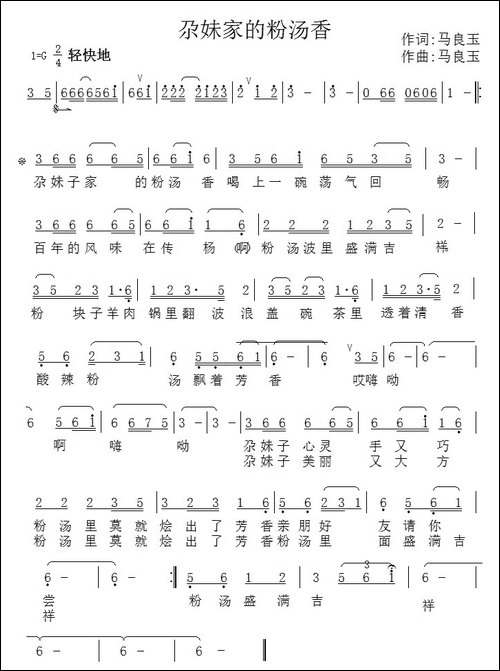 尕妹家的粉汤香
作词:马良玉
作曲:马良玉
1=G 2/4 轻快地
3 5 | 6666561 | 661 | 2122 2123 | 2 1 2 | 3 - | 3 - | 0 66 0606 | 1 - :
※ 3 6 6 6 6 5 | 6 6 1 6 | 3 5 6 1 | 6 5 3 5 | 3 -
尕妹子家 的粉汤 香喝上一碗荡气回 畅
3 6 6 6 6 5 | 6 6 1 1 6 | 2 2 2 | 1 2 3 5 | 2 -
百年的风味 在传 杨(啊)粉 汤波里盛满吉 祥
3 5 2 3 1·6 | 1 2 3·5 | 2 3 5 2 3 | 1 2 1·6 | 1 2 3·5 | 2 -
粉 块子羊肉 锅里翻 波 浪 盖 碗 茶里 透着清 香
5 6 2 3 1 | 6 5 5 6 1 | 6 - | 6 - | 3 5 | 6 - | 6 -
酸辣粉 汤飘着芳 香 哎嗨呦
6 5 6 1 | 6 - | 6 6 7 5 | 3 - | 3 - | 3 6 6 6 5 | 3 5 | 6 6 1 | 1 6
啊 嗨 呦 尕妹子 心灵 手又 巧
尕妹子 美丽 又大 方
2 2 2 3 5 | 3 2 2 3 | 1 6 5 6 2 3 1 | 6 5 6 1
粉汤里莫就烩出了芳香亲朋好 友请你
粉汤里莫就烩出了芳香粉汤里 面盛满吉
6 - | 6 - :| 5 5 6 1 2 | 3 5 6 1 | 6 - | 6 -
尝 粉 汤盛 满 吉 祥
祥
6 - | 6 - | 6 - | 6 - ‖